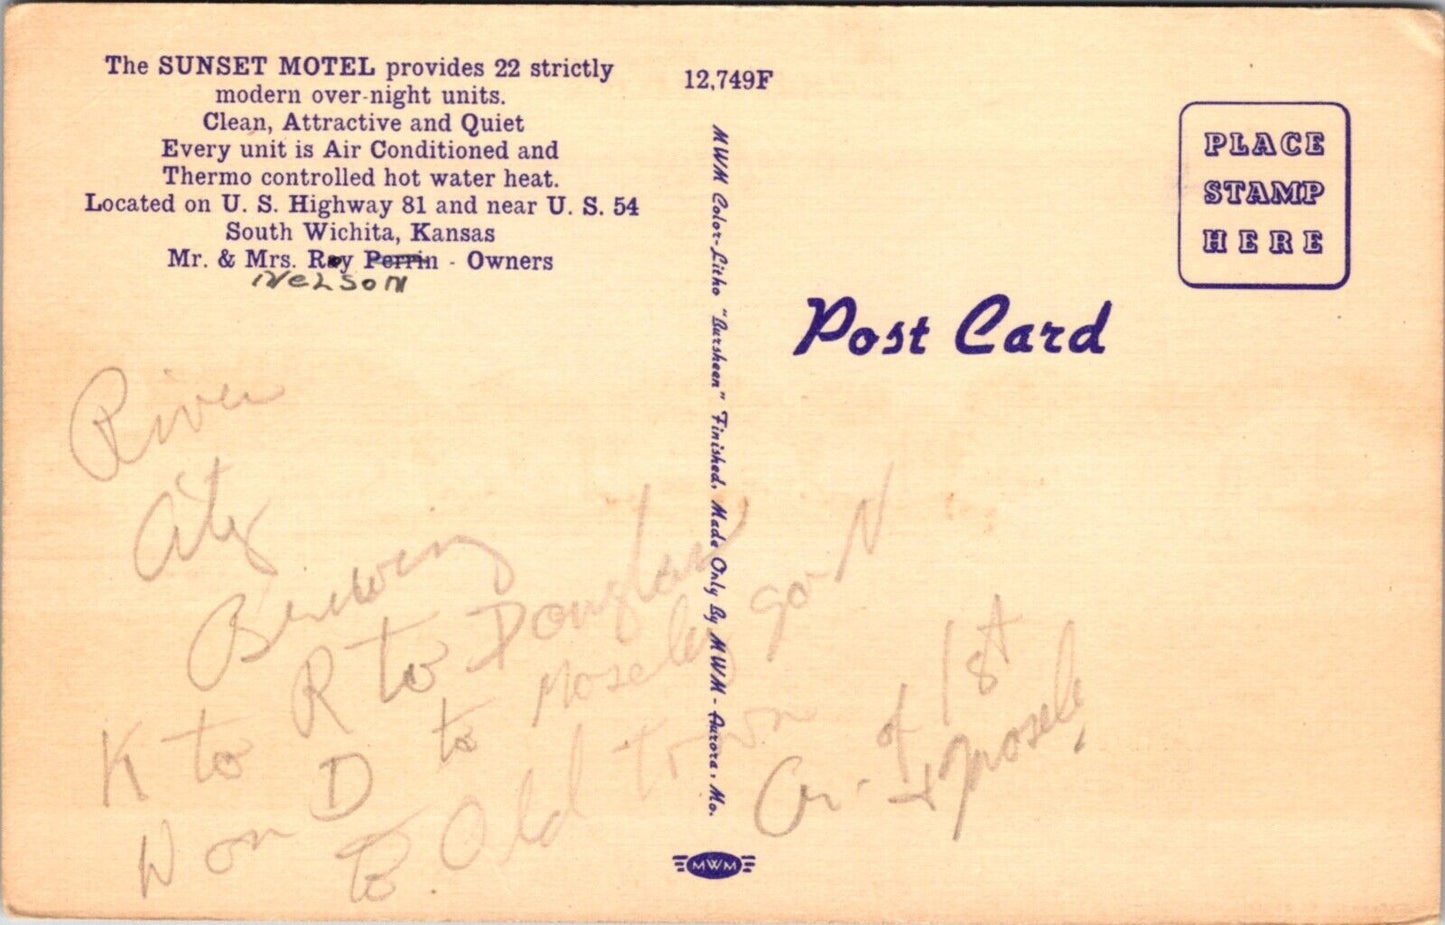 The SUNSET MOTEL provides 22 strictly
modern over-night units.
Clean, Attractive and Quiet
Every unit is Air Conditioned and
Thermo controlled hot water heat.
Located on U. S. Highway 81 and near U. S. 54
South Wichita, Kansas
Mr. & Mrs. Roy Perrin - Owners
NELSON
River
City
Brewing
K to R to Douglas
W on D to Moseley go N
to Old town
Cor. of 1st
+ Mosely
12,749F
MWM Color-Litho "Bursheen" Finished. Made Only By MWM - Aurora, Mo.
MWM
PLACE
STAMP
HERE
Post Card